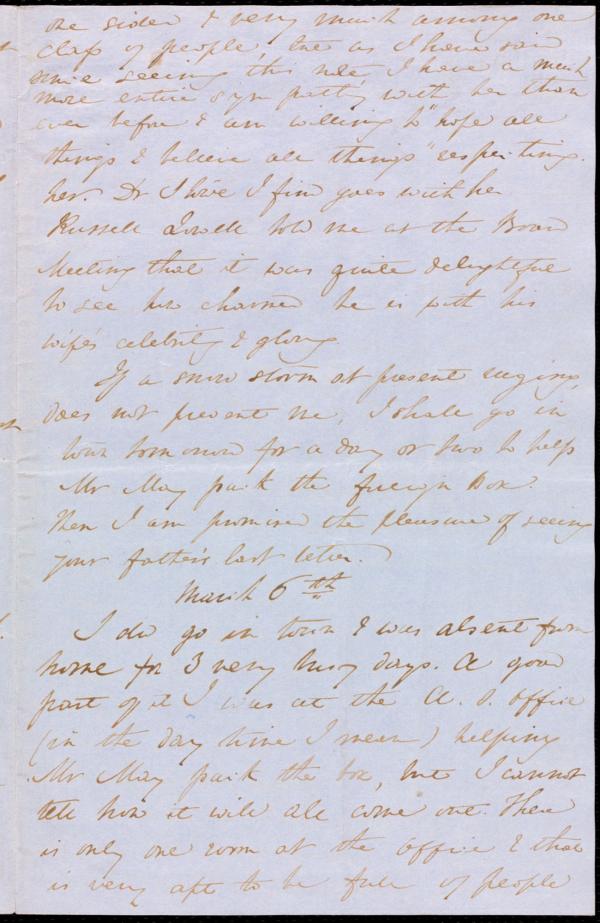 one sided & very much among one
class of people, but as I have said
since seeing this note I have a much
more entire sympathy with her than
ever before & am willing to "hope all
things & believe all things" respecting
her. Dr Howe I find goes with her
Russell Lowell told me at the Board
Meeting that it was quite delightful
to see how charmed he is with his
wife's celebrity & glory.
If a snow storm at present raging,
does not prevent me, I shall go in
town tomorrow for a day or two to help
Mr May pack the foreign Box.
Then I am promised the pleasure of seeing
your father's last letter.
March 6th
I did go in town & was absent from
home for 3 very busy days. A good
part of it I was at the A. S. office
(in the day time I mean) helping
Mr May pack the box, but I cannot
tell how it will all come out. There
is only one room at the office & that
is very apt to be full of people